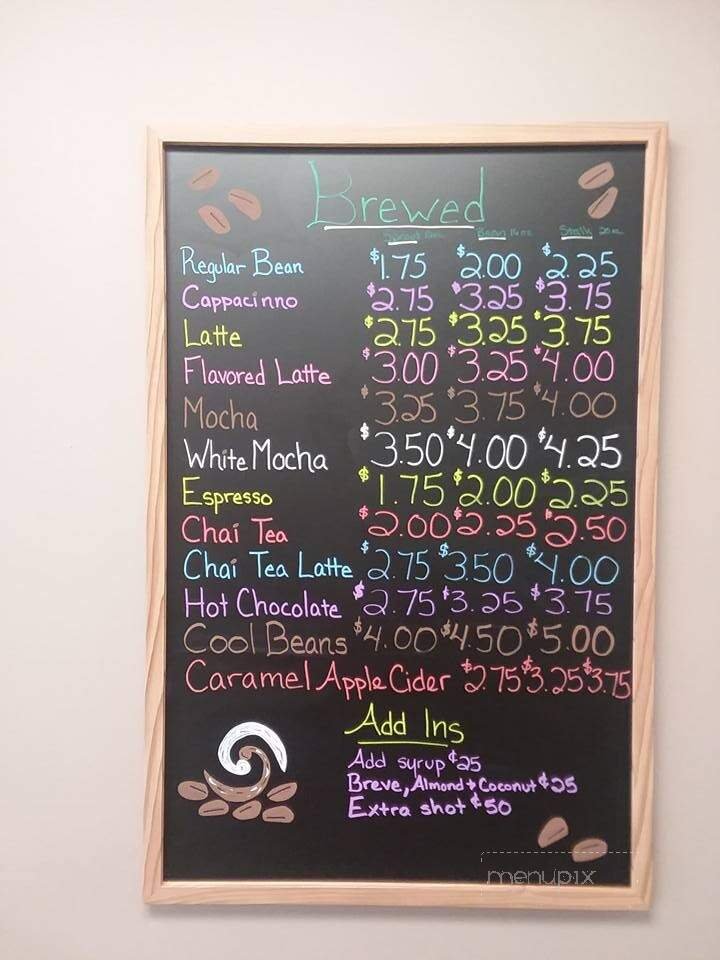 Brewed
Sprout 12oz. Bean 16 oz. Stalk 20 oz.
Regular Bean $1.75 $2.00 $2.25
Cappacinno $2.75 $3.25 $3.75
Latte $2.75 $3.25 $3.75
Flavored Latte $3.00 $3.25 $4.00
Mocha $3.25 $3.75 $4.00
White Mocha $3.50 $4.00 $4.25
Espresso $1.75 $2.00 $2.25
Chai Tea $2.00 $2.25 $2.50
Chai Tea Latte $2.75 $3.50 $4.00
Hot Chocolate $2.75 $3.25 $3.75
Cool Beans $4.00 $4.50 $5.00
Caramel Apple Cider $2.75 $3.25 $3.75
Add Ins
Add syrup ¢25
Breve, Almond + Coconut ¢25
Extra shot ¢50
menupix